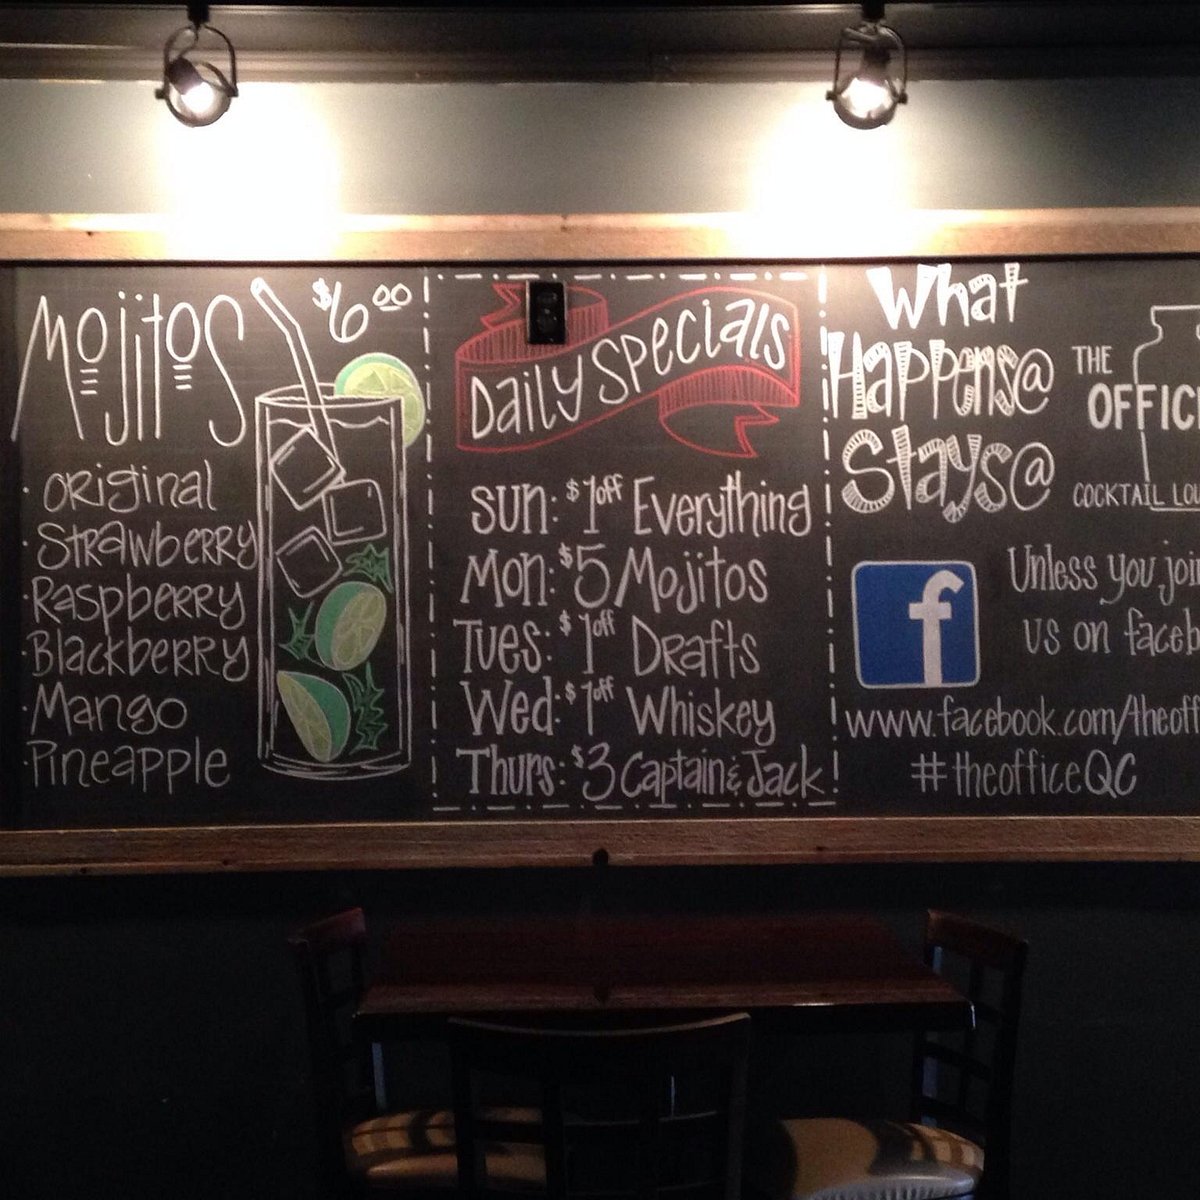 Mojitos $6.00
· Original
· Strawberry
· Raspberry
· Blackberry
· Mango
· Pineapple
Daily Specials
Sun: $1 off Everything
Mon: $5 Mojitos
Tues: $1 off Drafts
Wed: $1 off Whiskey
Thurs: $3 Captain & Jack
What
Happens@
Stays@
THE
OFFIC
COCKTAIL LO
f
Unless you join
us on faceb
www.facebook.com/theoff
#theofficeQC